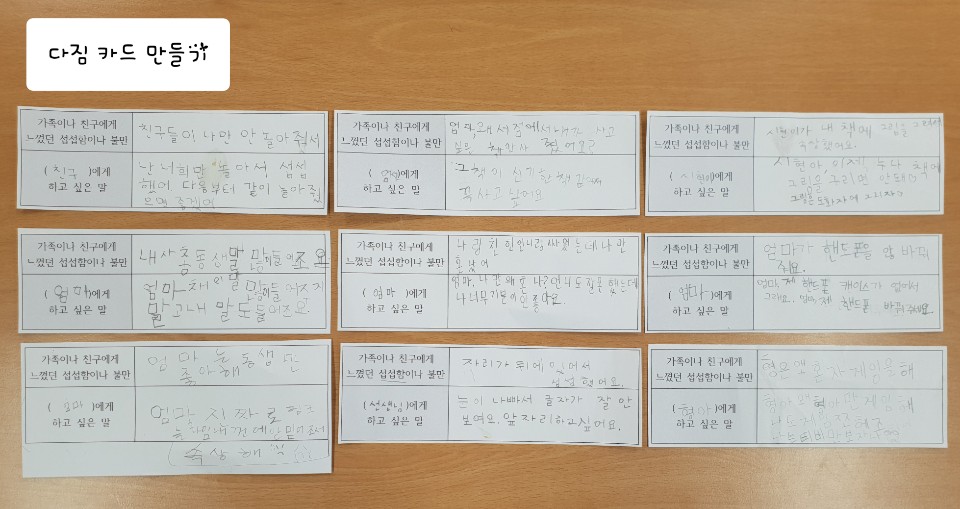 다짐 카드 만들기
가족이나 친구에게
느꼈던 섭섭함이나 불만
친구들이 나만 안 놀아줘서
( 친구 )에게
하고 싶은 말
난 너희만 놀아서 섭섭
해에 다음부터 같이 놀아줬
으면 좋겠어
가족이나 친구에게
느꼈던 섭섭함이나 불만
엄마
책 안사
( 엄마)에게
하고 싶은 말
그 책이 신기한 책
꼭 사고 싶어요
가족이나 친구에게
느꼈던 섭섭함이나 불만
시현이가 내 책에 그림을
속상했어요.
( 시현이)에게
하고 싶은 말
시현아, 이제 누나 책에
그림을 그리면 안돼
그림은 도화지에 그리자
가족이나 친구에게
느꼈던 섭섭함이나 불만
내 사촌동생말 만 들어조요
( 엄마)에게
하고 싶은 말
엄마 채 말 만 들어주지
말고 내 말도들어조요.
가족이나 친구에게
느꼈던 섭섭함이나 불만
나랑 친한언니랑싸웠는데나만
혼났어
( 엄마 )에게
하고 싶은 말
엄마, 나만 왜 혼나 언니도 잘못했는데
나너무기분이안좋아요.
가족이나 친구에게
느꼈던 섭섭함이나 불만
엄마가 핸드폰을 안 바꿔
줘요.
( 엄마)에게
하고 싶은 말
엄마 제 핸드폰 케이스가 없어서
그래요. 엄마 제 핸드폰 바꿔주세요
가족이나 친구에게
느꼈던 섭섭함이나 불만
엄마는동생만
좋아해
( 엄마 )에게
하고 싶은 말
엄마 진짜로
( 속상해
가족이나 친구에게
느꼈던 섭섭함이나 불만
자리가 뒤에 있어서
섭섭했어요.
( 선생님)에게
하고 싶은 말
눈이 나빠서 글자가 잘 안
보여요. 앞자리하고싶어요.
가족이나 친구에게
느꼈던 섭섭함이나 불만
형은맨 혼자게임을해
( 형아 )에게
하고 싶은 말
형아왜형아만게임해